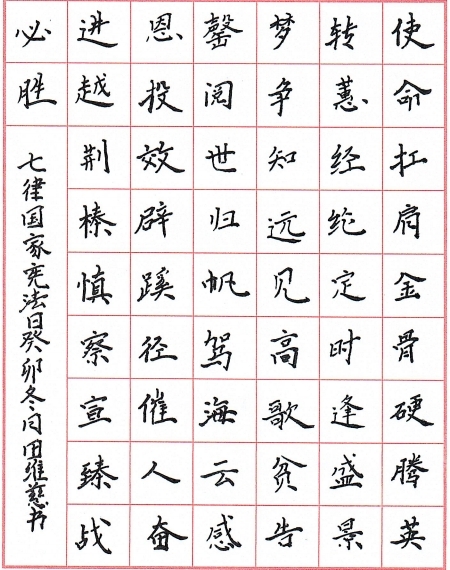 使命扛肩金骨硬腾英
转蕙经纶定时逢盛景
梦争知远见高歌贫告
罄阅世归帆驾海云感
恩投效辟蹊径催人奋
进越荆榛慎察宣臻战
必胜
七律国家宪法日癸卯冬田维慈书